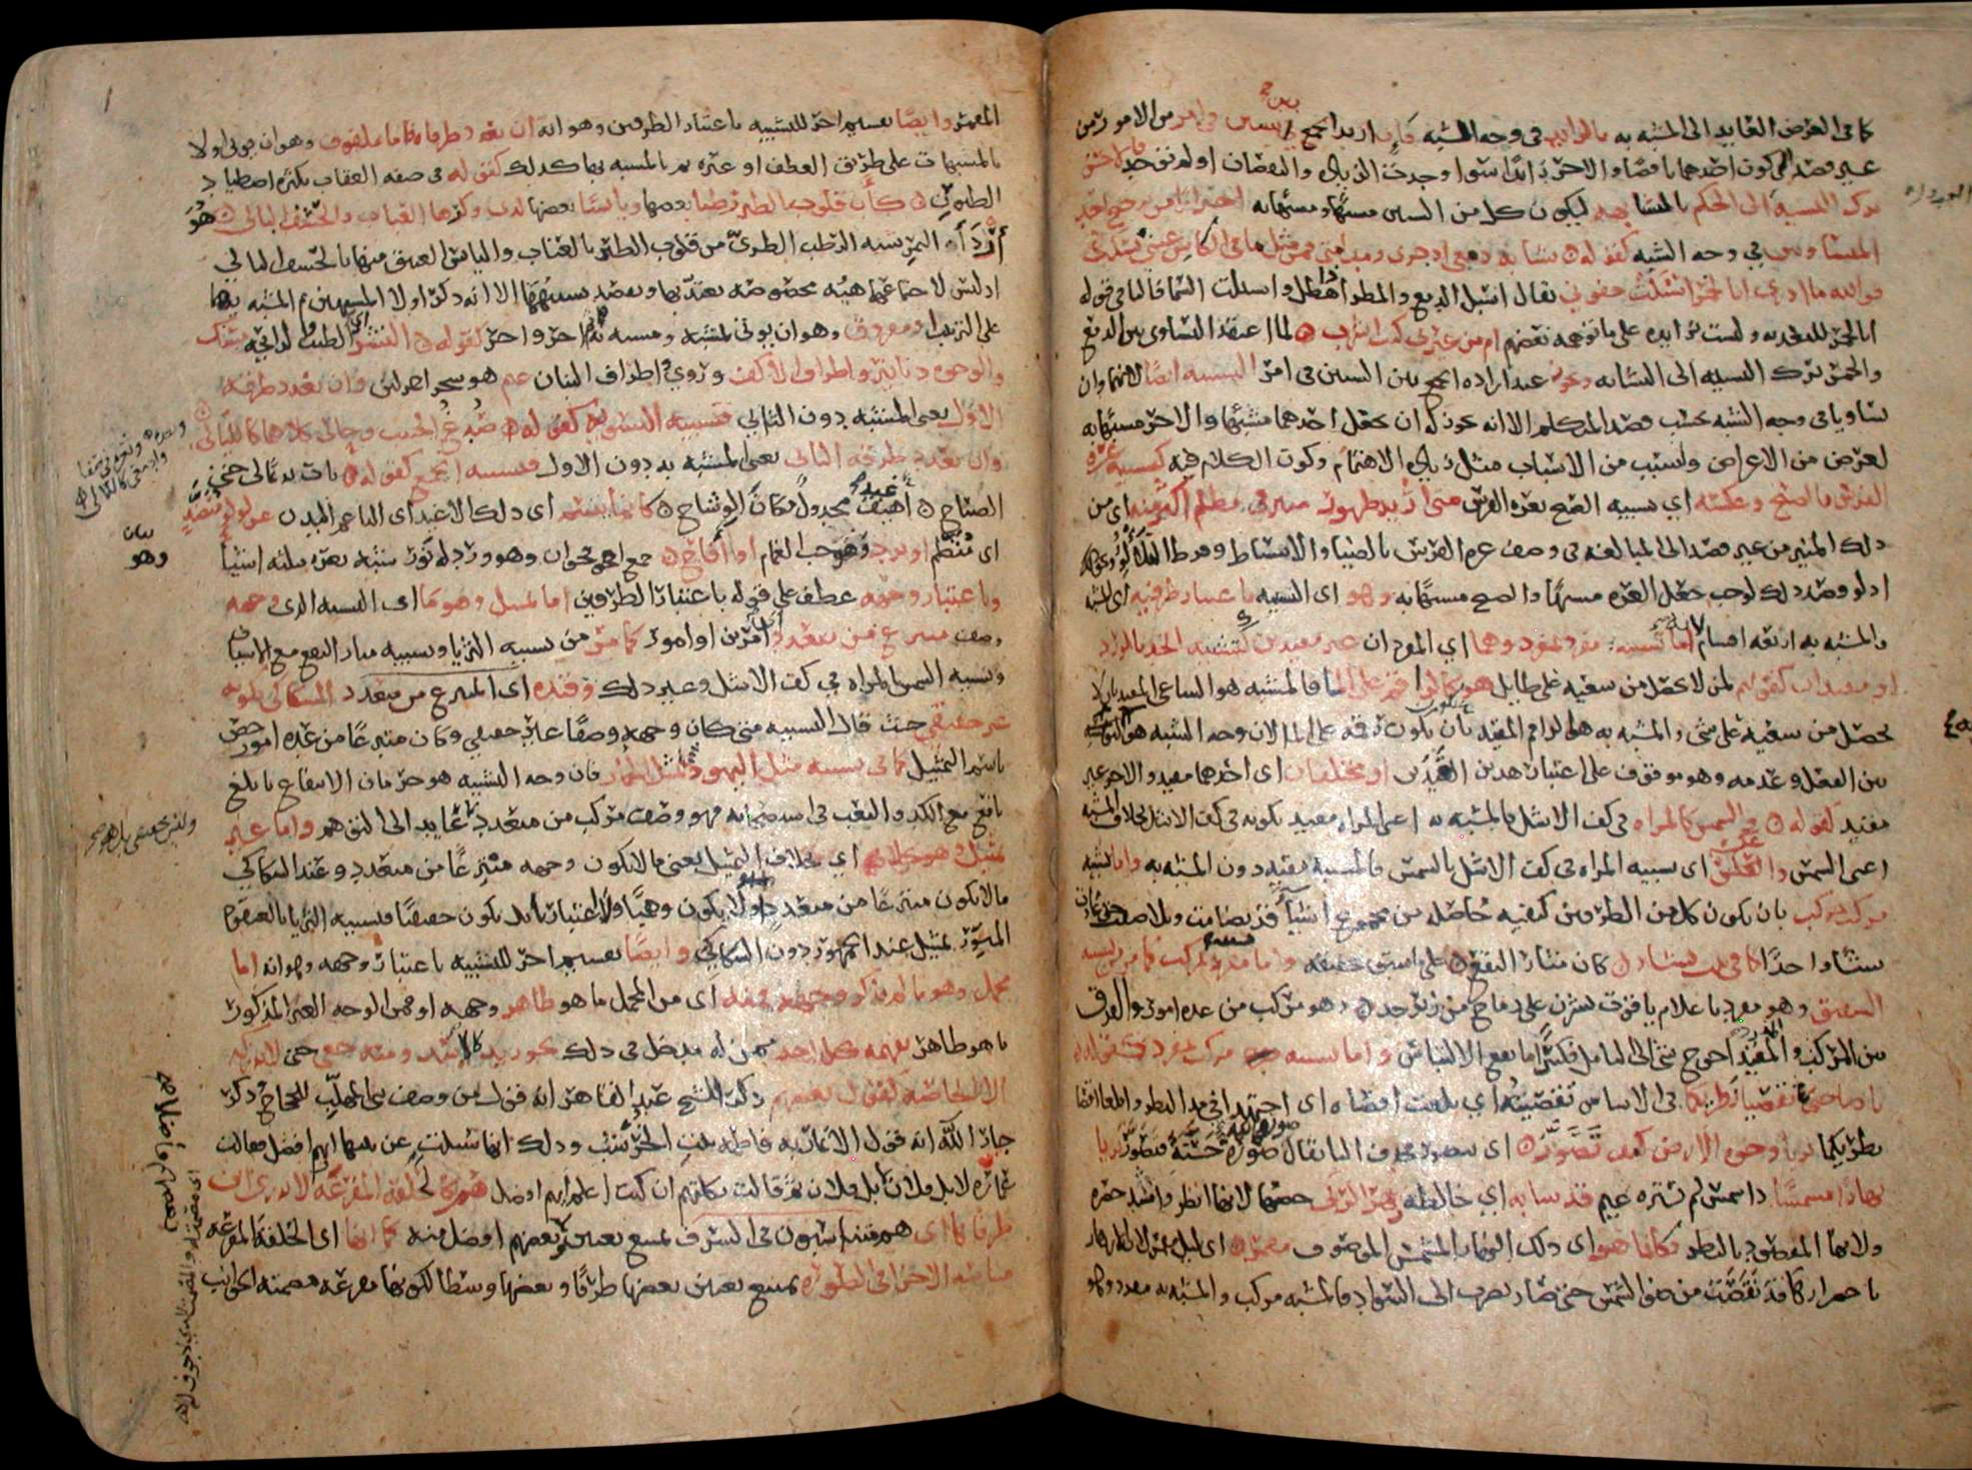 كما في الغرض العايد الى المشبه به بالزايد في وجه الشبه فان اريد الجمع بين شيئين في امر من الامور من
غير قصد الى كون احدهما ناقصا والاخر زايدا سوا وجدت الزيادة والنقصان او لم توجد فالاحسن
ترك التشبيه الى الحكم بالتشابه ليكون كل من الشيئين مشبها ومشبها به احترازا من ترجيح احد
المتساويين في وجه الشبه كقوله تشابه دمعي اذ جرى ومدامتي فمن مثل ما في الكاس عيني تسكب
فوالله ما ادري ابالخمر اسبلت جفوني يقال اسبل الدمع والمطر اذا هطل واسبلت السما فالبا في قوله
ابالخمر للتعدية وليست بزايدة على ما توهمه بعضهم ام من عبرتي كنت اشرب لما اعتقد التساوي بين الدمع
والخمر ترك التشبيه الى التشابه ويجوز عند ارادة الجمع بين الشيئين في امر التشبيه ايضا لانهما وان
تساويا في وجه الشبه بحسب قصد المتكلم الا انه يجوز له ان يجعل احدهما مشبها والاخر مشبها به
لغرض من الاغراض ولسبب من الاسباب مثل زيادة الاهتمام وكون الكلام فيه كتشبيه غرة
الفرس بالصبح وعكسه اي تشبيه الصبح بغرة الفرس متى اريد ظهور منير في مظلم اكثر منه اي من
ذلك المنير من غير قصد الى المبالغة في وصف غرة الفرس بالضيا والانبساط وفرط التلالو ونحو ذلك
اذ لو قصد ذلك لوجب جعل الغرة مشبها والصبح مشبها به وهو اي التشبيه باعتبار طرفيه اي المشبه
والمشبه به اربعة اقسام اما تشبيه مفرد بمفرد وهما اي المفردان غير مقيدين كتشبيه الخد بالورد
او مقيدان كقولهم لمن لا يحصل من سعيه على طايل هو كالراقم على الما فالمشبه هو الساعي المقيد بان لا
يحصل من سعيه على شي والمشبه به هو الراقم المقيد بان يكون رقمه على الما لان وجه الشبه هو التسوية
بين الفعل وعدمه وهو موقوف على اعتبار هذين القيدين او مختلفان اي احدهما مقيد والاخر غير
مقيد كقوله والشمس كالمراة في كف الاشل فالمشبه به اعني المراة مقيد بكونه في كف الاشل بخلاف المشبه
اعني الشمس وعكسه اي تشبيه المراة في كف الاشل بالشمس فالمشبه مقيد دون المشبه به واما تشبيه
مركب بمركب بان يكون كل من الطرفين كيفية حاصلة من مجموع اشيا قد تضامت وتلاصقت حتى عادت
شيئا واحدا كما في بيت بشار كان مثار النقع على ما سبق تحقيقه واما تشبيه مفرد بمركب كما مر من تشبيه
الشقيق وهو مفرد باعلام ياقوت نشرن على رماح من زبرجد وهو مركب من عدة امور والفرق
بين المركب والمفرد المقيد احوج شي الى التامل فكثيرا ما يقع الالتباس واما تشبيه مركب بمفرد كقوله
يا صاحبي تقصيا نظريكما في الاساس تقصيته اي بلغت اقصاه اي اجتهدا في النظر وابلغا اقصى
نظريكما تريا وجوه الارض كيف تصور اي تتصور بحذف التا يقال صوره الله صورة حسنة فتصور تريا
نهارا مشمسا ذا شمس لم يستره غيم قد شابه اي خالطه زهر الربى خصها لانها انضر واشد خضرة
ولانها المقصود بالنظر فكانما هو اي ذلك النهار المشمس الموصوف مقمر اي ليل مقمر لان الازهار
باخضرارها قد نقصت من ضو الشمس حتى صار يضرب الى السواد فالمشبه مركب والمشبه به مفرد وهو
المقمر وايضا تقسيم اخر للتشبيه باعتبار الطرفين وهو انه ان تعدد طرفاه فاما ملفوف وهو ان يوتى اولا
بالمشبهات على طريق العطف او غيره ثم بالمشبه بها كذلك كقوله في صفة العقاب بكثرة اصطياد
الطيور كان قلوب الطير رطبا بعضها ويابسا بعضها لدى وكرها العناب والحشف البالي هو
اردا التمر شبه الرطب الطري من قلوب الطير بالعناب واليابس العتيق منها بالحشف البالي
اذ ليس لاجتماعهما هيئة مخصوصة يعتد بها ويقصد تشبيهها الا انه ذكر اولا المشبهين ثم المشبه بهما
على الترتيب او مفروق وهو ان يوتى بمشبه ومشبه به ثم اخر واخر كقوله النشر اي الطيب والرايحة مسك
والوجوه دنانير واطراف الاكف وروي اطراف البنان عنم هو شجر احمر لين وان تعدد طرفه
الاول يعني المشبه دون الثاني فتشبيه التسوية كقوله صدغ الحبيب وحالي كلاهما كالليالي
وان تعدد طرفه الثاني يعني المشبه به دون الاول فتشبيه الجمع كقوله بات نديما لي حتى
الصباح اغيد مجدول مكان الوشاح كانما يبسم اي ذلك الاغيد اي الناعم البدن عن لولو منضد
اي منظم او برد هو حب الغمام او اقاح جمع اقحوان وهو ورد له نور شبه ثغره بثلثة اشيا
وباعتبار وجهه عطف على قوله باعتبار الطرفين اما تمثيل وهو ما اي التشبيه الذي وجهه
وصف منتزع من متعدد امرين او امور كما مر من تشبيه الثريا وتشبيه مثار النقع مع الاسياف
وتشبيه الشمس بالمراة في كف الاشل وغير ذلك وقيده اي المنتزع من متعدد السكاكي بكونه
غير حقيقي حيث قال التشبيه متى كان وجهه وصفا غير حقيقي وكان منتزعا من عدة امور خص
باسم التمثيل كما في تشبيه مثل اليهود بمثل الحمار فان وجه الشبه هو حرمان الانتفاع بابلغ
نافع مع الكد والتعب في استصحابه فهو وصف مركب من متعدد عايد الى التوهم واما غير
تمثيل وهو بخلافه اي بخلاف التمثيل يعني ما لا يكون وجهه منتزعا من متعدد وعند السكاكي
ما لا يكون منتزعا من متعدد او لا يكون وهميا ولا اعتباريا بل يكون حقيقيا فتشبيه الثريا بالعنقود
المنور تمثيل عند الجمهور دون السكاكي وايضا تقسيم اخر للتشبيه باعتبار وجهه وهو انه اما
مجمل وهو ما لم يذكر وجهه فمنه اي من المجمل ما هو ظاهر وجهه او فمن الوجه الغير المذكور
ما هو ظاهر يفهمه كل احد ممن له مدخل في ذلك نحو زيد كالاسد ومنه خفي لا يدركه
الا الخاصة كقول بعضهم ذكر الشيخ عبد القاهر انه قول من وصف بني المهلب للحجاج وذكر
جار الله انه قول الانمارية فاطمة بنت الخرشب وذلك انها سئلت عن بنيها ايهم افضل فقالت
عمارة لا بل فلان لا بل فلان ثم قالت ثكلتهم ان كنت اعلم ايهم افضل هم كالحلقة المفرغة لا يدرى اين
طرفاها اي هم متناسبون في الشرف يمتنع تعيين بعضهم افضل منه كما انها اي الحلقة المفرغة
متناسبة الاجزا في الصورة يمتنع تعيين بعضها طرفا وبعضها وسطا لكونها مفرغة مصمتة الجوانب